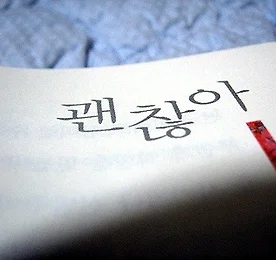 괜찮아